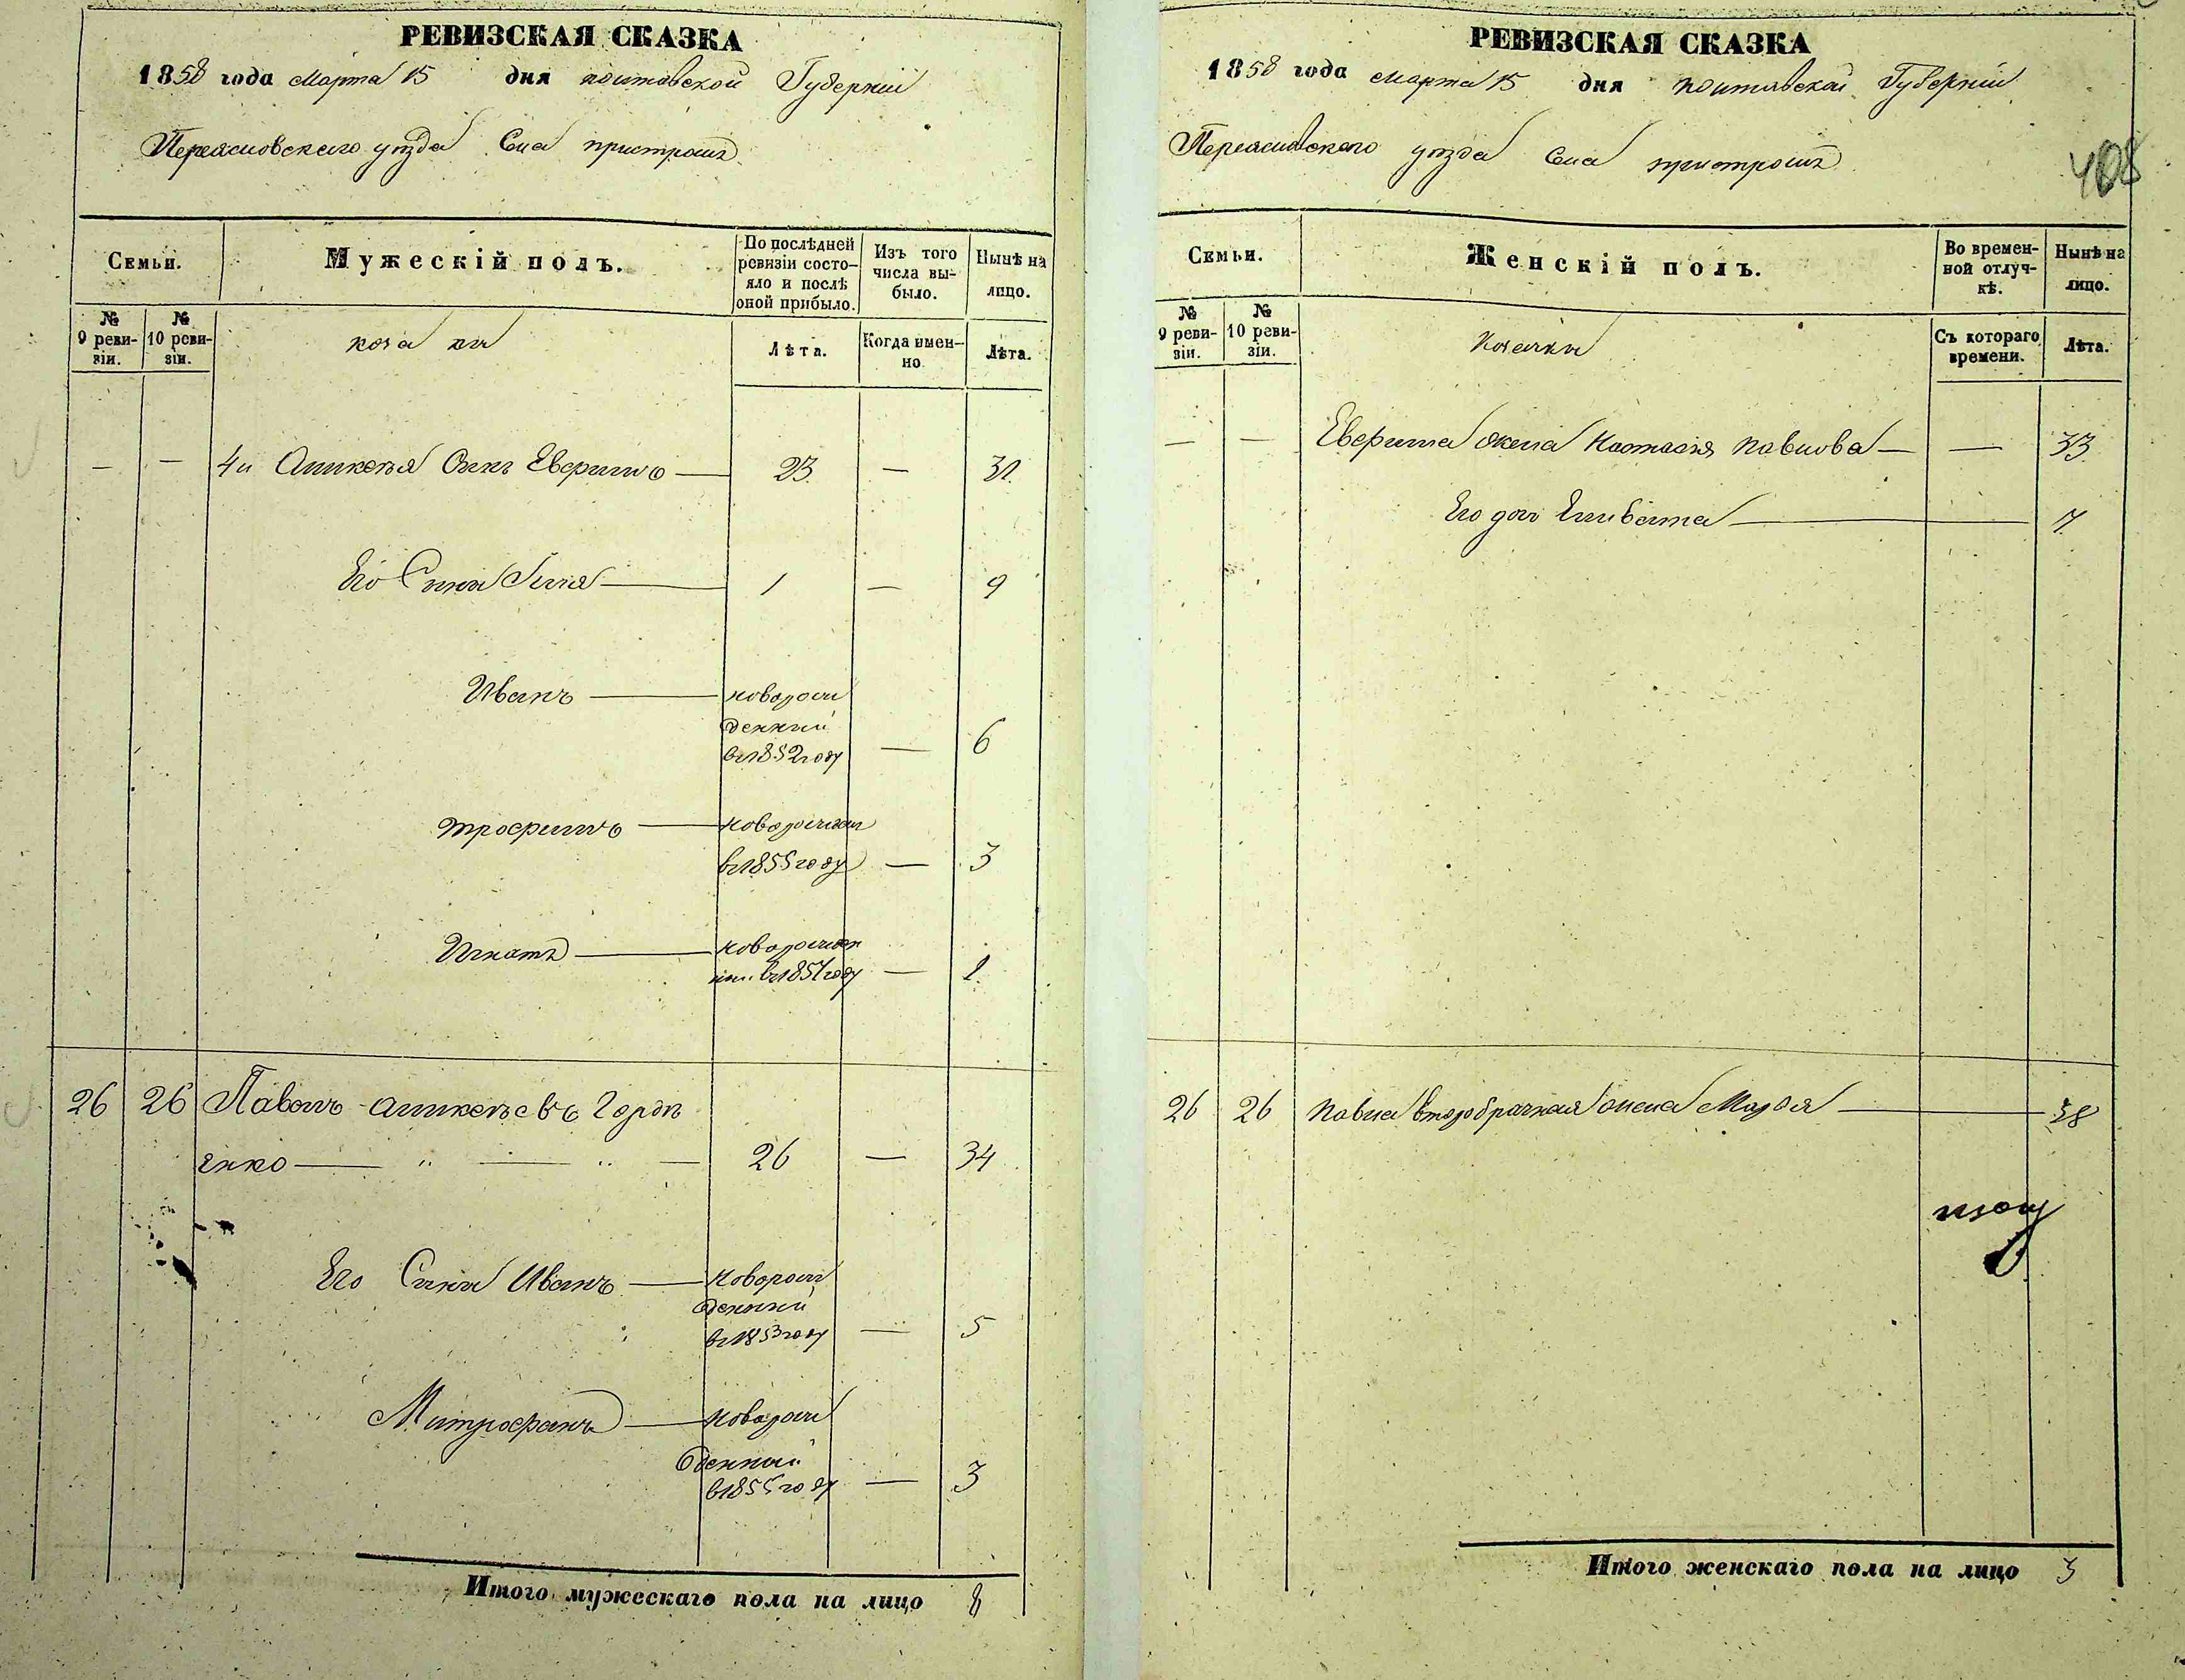 РЕВИЗСКАЯ СКАЗКА
1858 года Марта 15 дня Полтавской Губерніи
Переяславского уезда Села пристромъ
Семьи.
Мужескій полъ.
По послѣдней ревизіи состо-
яло и послѣ
оной прибыло.
Изъ того
числа вы-
было.
Нынѣ на
лицо.
№
9 реви-
зіи.
№
10 реви-
зіи.
козаки
Лѣта.
Когда имен-
но
Лѣта.
— — 4й Аликсѣя Сынъ Ефримъ — 23 — 31
Его Сыни Илля — 1 — 9
Иванъ — новорож
денный
въ 1852 году — 6
трофимъ — новорожден
въ 1855 году — 3
Игнатъ — новорожден
ный въ 1857 году — 1
26 26 Павелъ Аликсѣевъ Горди
енко — 26 — 34
Его Сыни Иванъ — новорож
денный
въ 1853 году — 5
Митрофанъ — новорож
денный
въ 1855 году — 3
Итого мужескаго пола на лицо 8
РЕВИЗСКАЯ СКАЗКА
1858 года Марта 15 дня Полтавской Губерніи
Переяславского уезда Села пристромъ
408
Семьи.
Женскій полъ.
Во времен-
ной отлуч-
кѣ.
Нынѣ на
лицо.
№
9 реви-
зіи.
№
10 реви-
зіи.
Козачки
Съ котораго
времени.
Лѣта.
— — Ефрима жена Настасія Павлова — — 33
Его дочь Елисавета — 7
26 26 Павла второбрачная жена Марфа — 38
Итого женскаго пола на лицо 3